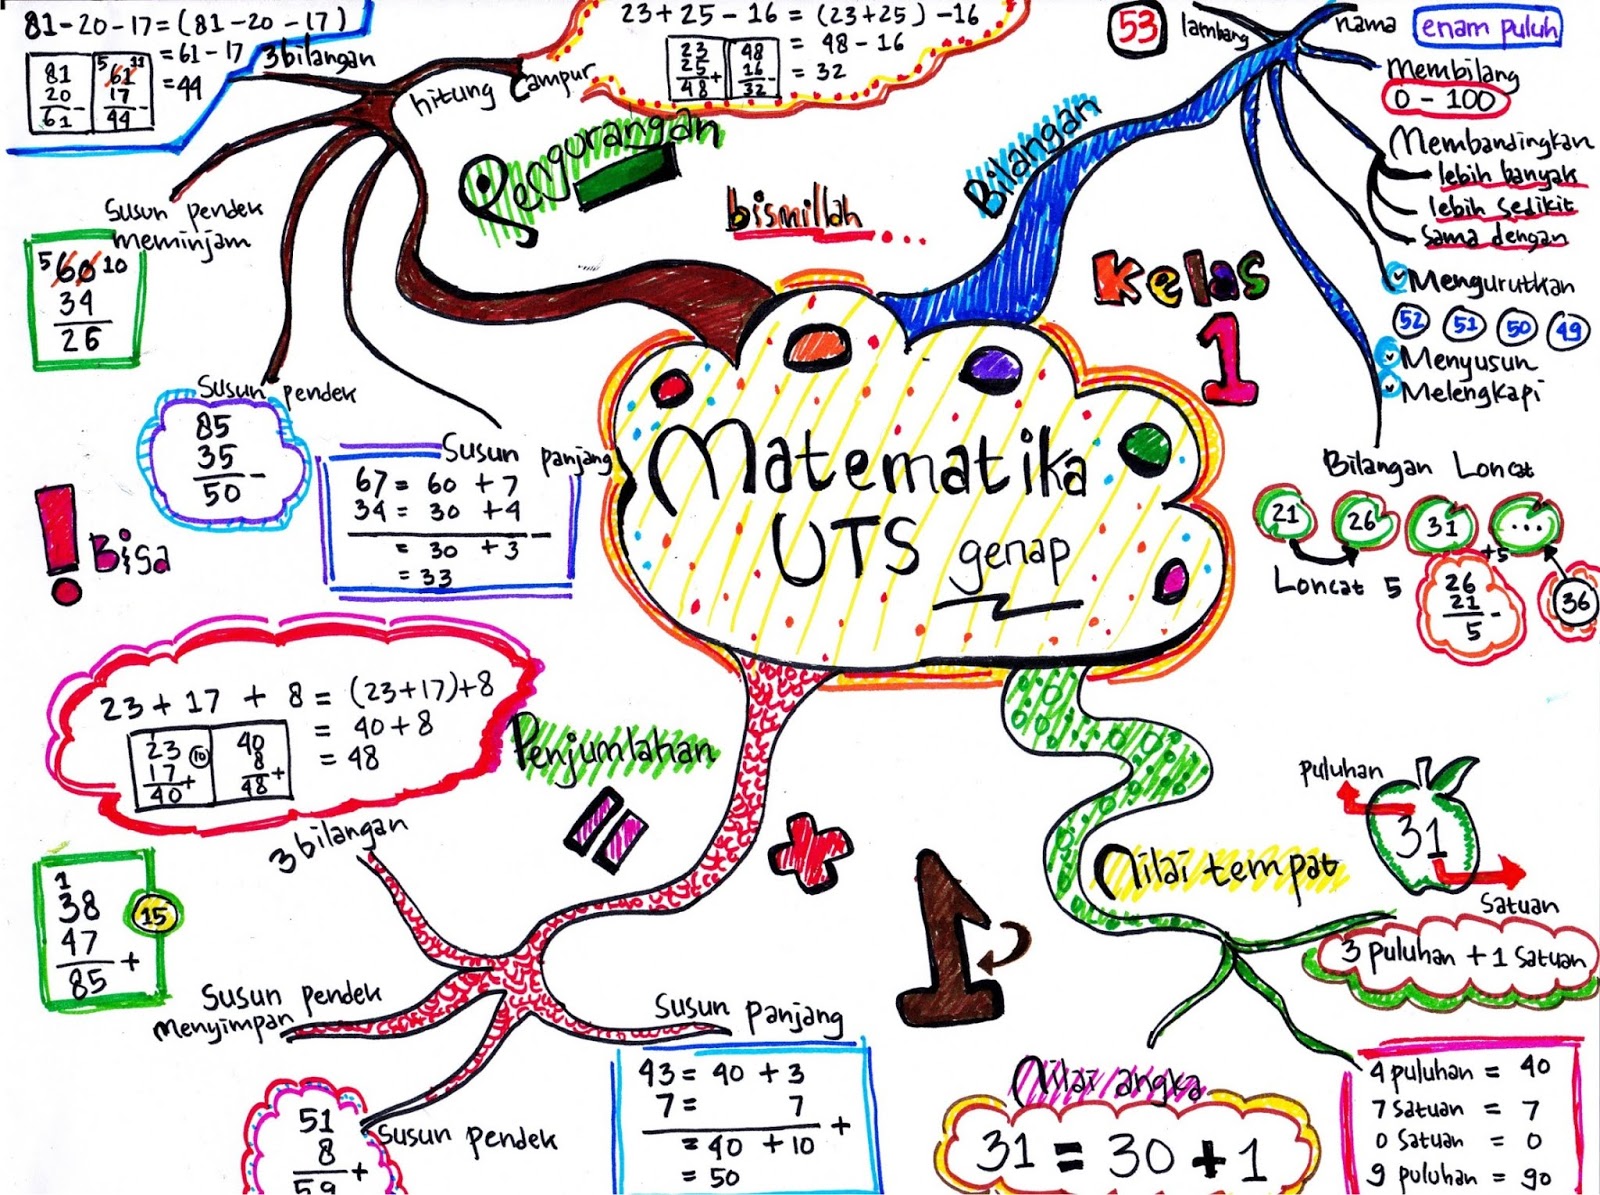 81-20-17 = (81-20-17)
= 61-17
= 44
81
20
61 -
5 11
61
17
44 -
3 bilangan
hitung campur
23+25-16 = (23+25)-16
= 48-16
= 32
23
25
48 +
48
16
32 -
Pengurangan
Susun pendek
meminjam
5 60 10
34
26
Susun pendek
85
35
50 -
Susun panjang
67 = 60 + 7
34 = 30 + 4
= 30 + 3 -
= 33
! Bisa
bismillah...
Bilangan
53
lambang
nama
enam puluh
Membilang
0 - 100
Membandingkan
lebih banyak
lebih sedikit
sama dengan
Mengurutkan
52 51 50 49
Menyusun
Melengkapi
Bilangan Loncat
21 26 31 ...
+5
Loncat 5
26
21
5 -
36
Kelas
1
Matematika
UTS genap
23 + 17 + 8 = (23+17)+8
= 40+8
= 48
1
23 10
17
40 +
40
8
48 +
3 bilangan
Penjumlahan
=
+
1
38
47
85 +
15
Susun pendek
menyimpan
51
8
59 +
Susun pendek
Susun panjang
43 = 40 + 3
7 = 7
= 40 + 10 +
= 50
1
Nilai tempat
puluhan
31
Satuan
3 puluhan + 1 Satuan
Nilai angka
31 = 30 + 1
4 puluhan = 40
7 Satuan = 7
0 Satuan = 0
9 puluhan = 90